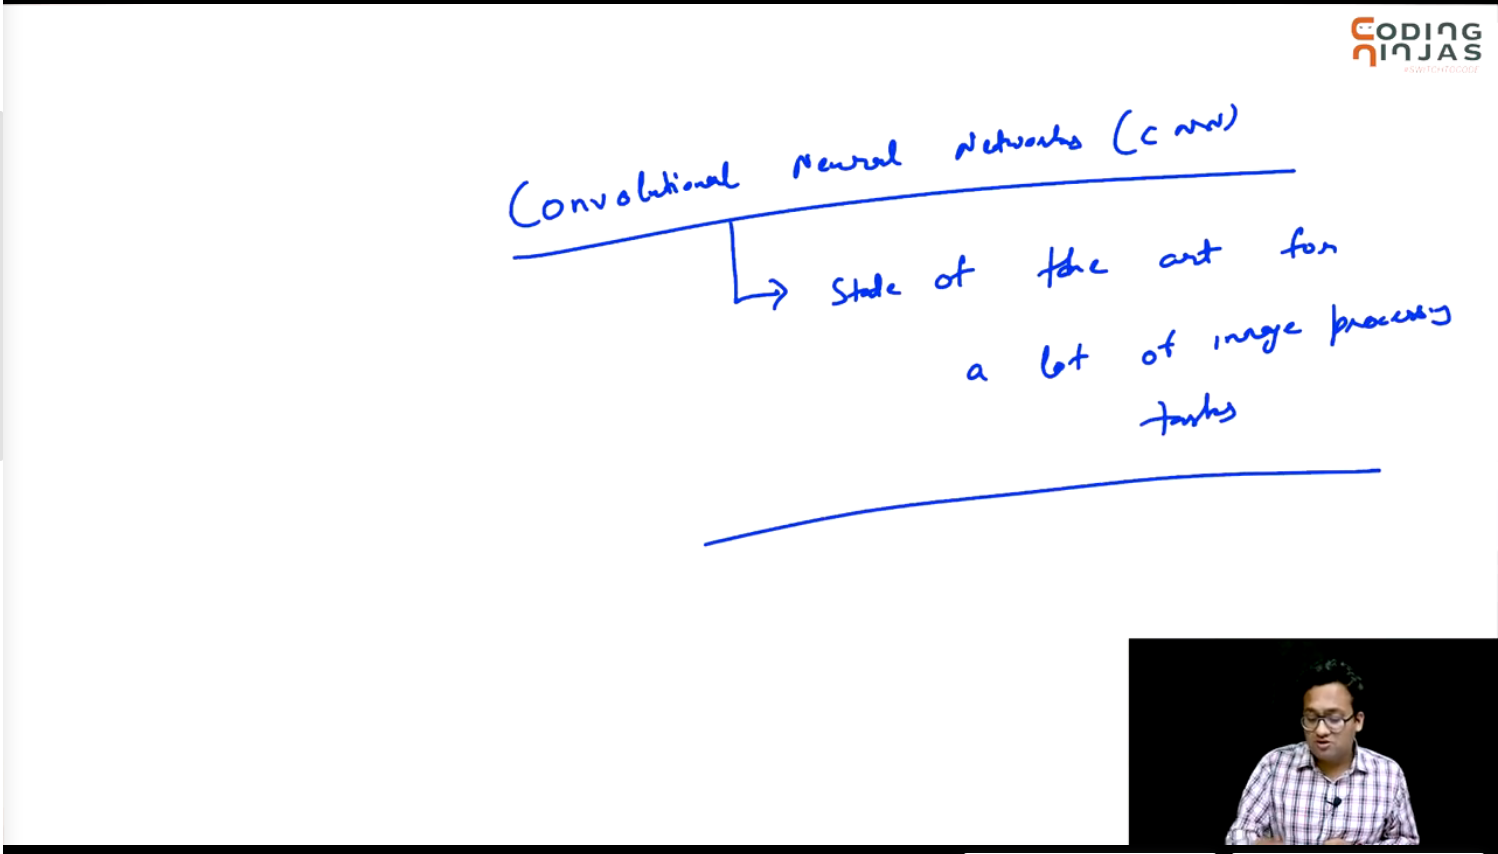 CODING
NINJAS
#SWITCHTOCODE
Convolutional Neural Networks (CNN)
State of the art for
a lot of image processing
tasks